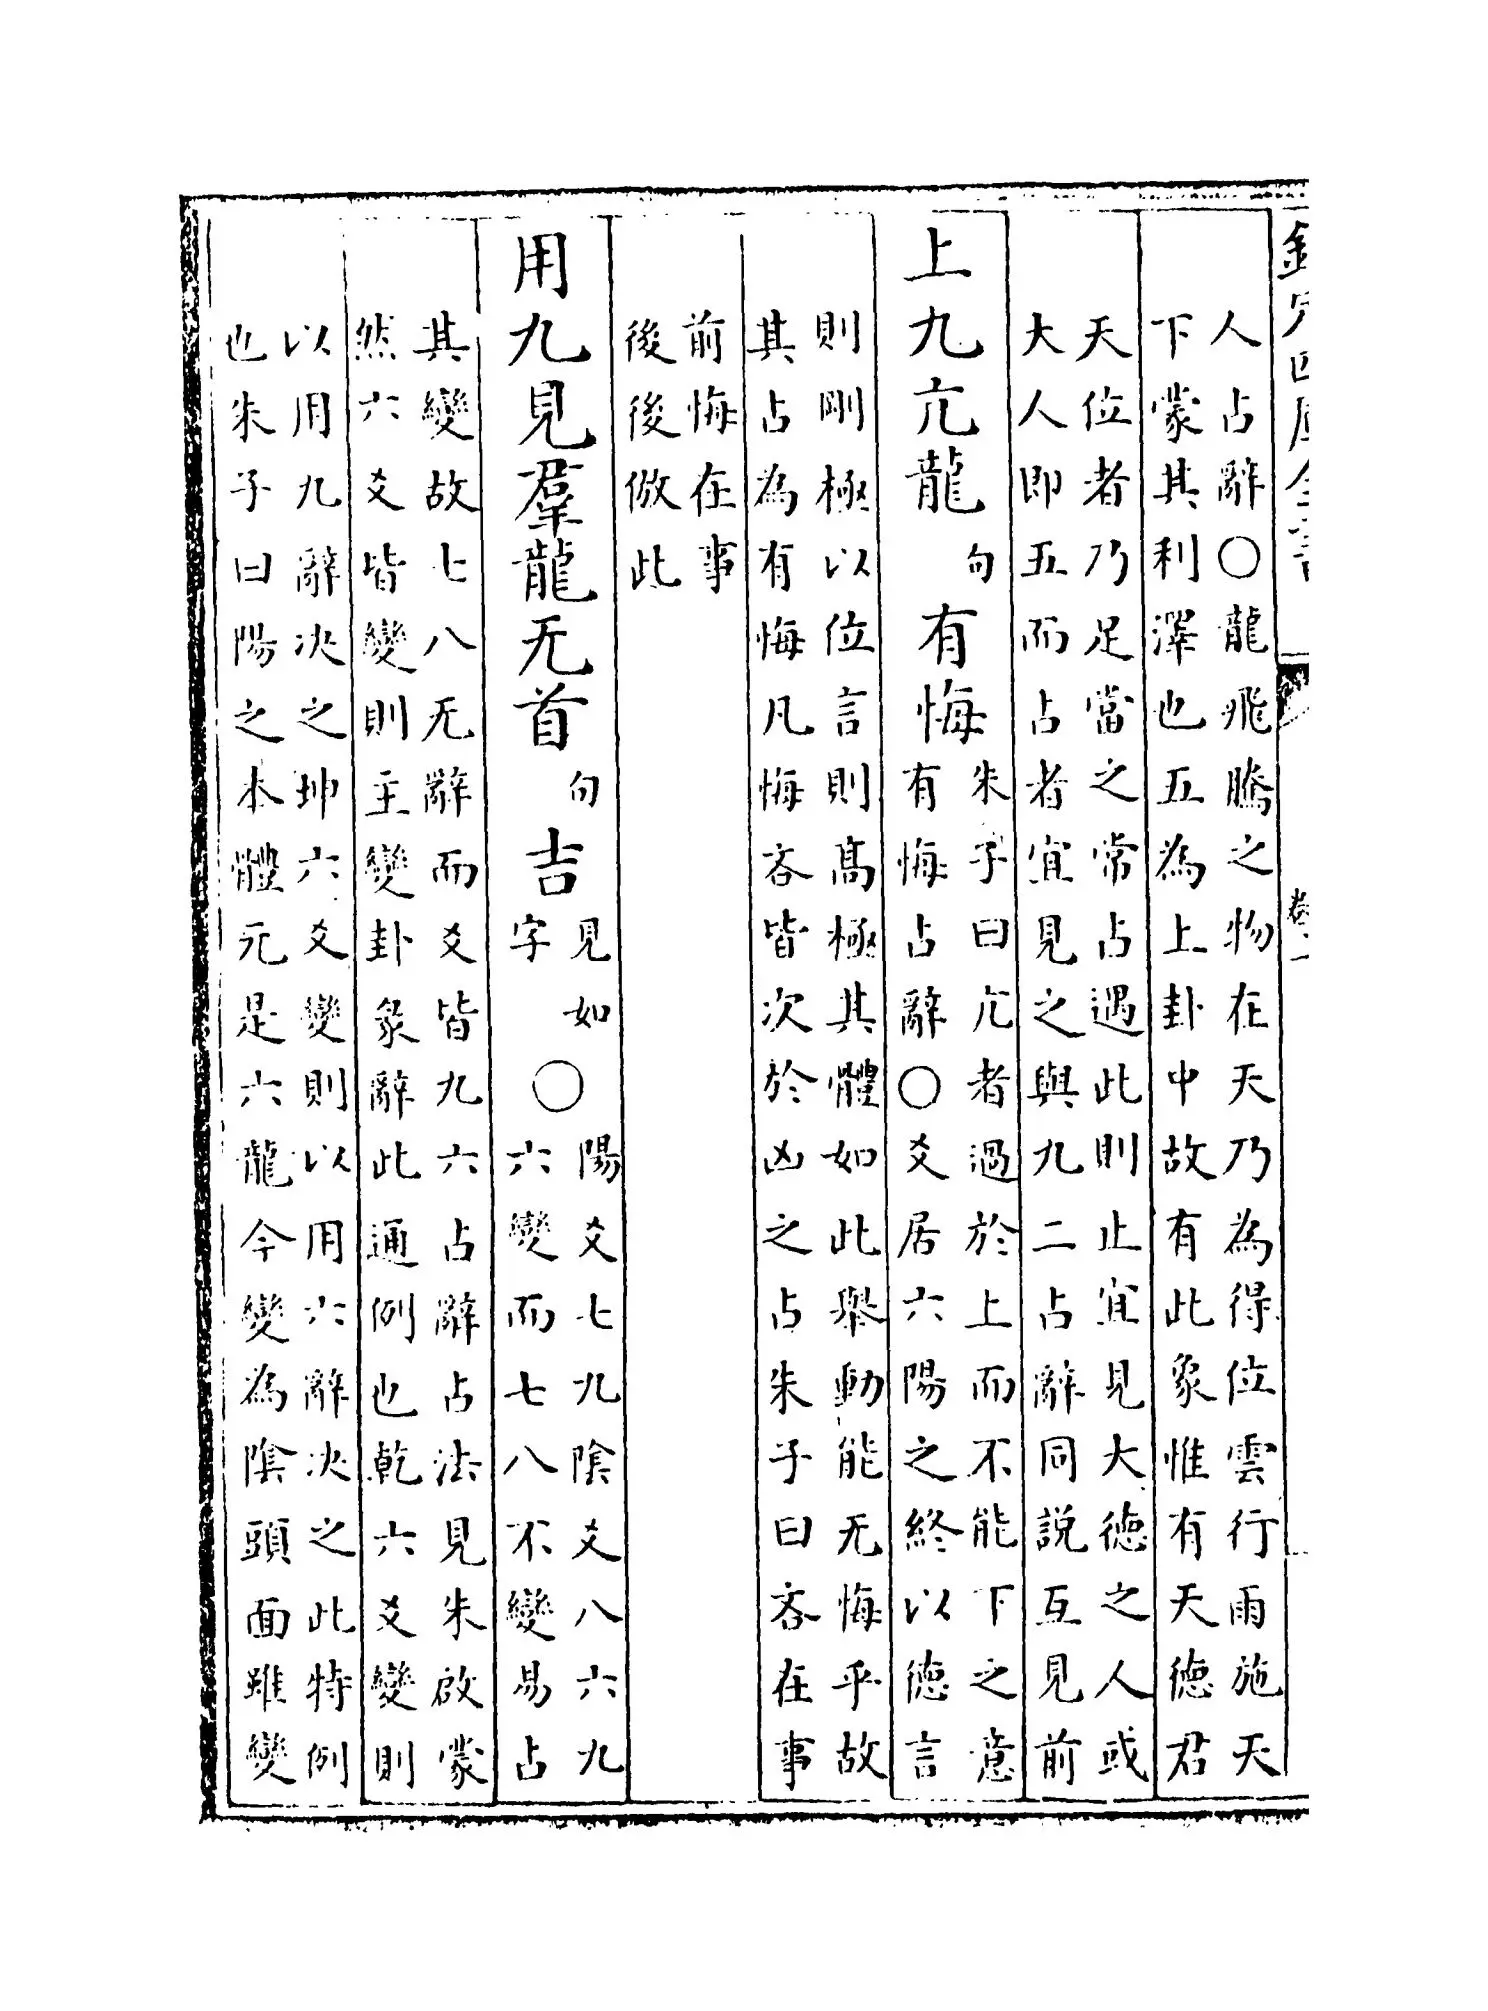 欽定四庫全書
卷一
人占辭○龍飛騰之物在天乃為得位雲行雨施天
下蒙其利澤也五為上卦中故有此象惟有天德君
天位者乃足當之常占遇此則止宜見大德之人或
大人即五而占者宜見之與九二占辭同說互見前
上九亢龍句有悔
朱子曰亢者過於上而不能下之意
有悔占辭○爻居六陽之終以德言
則剛極以位言則髙極其體如此舉動能无悔乎故
其占為有悔凡悔吝皆次於凶之占朱子曰吝在事
前悔在事
後後倣此
用九見羣龍无首句吉
見如
字
○
陽爻七九陰爻八六九
六變而七八不變易占
其變故七八无辭而爻皆九六占辭占法見朱啟蒙
然六爻皆變則主變卦彖辭此通例也乾六爻變則
以用九辭决之坤六爻變則以用六辭决之此特例
也朱子曰陽之本體元是六龍今變為陰頭面雖變